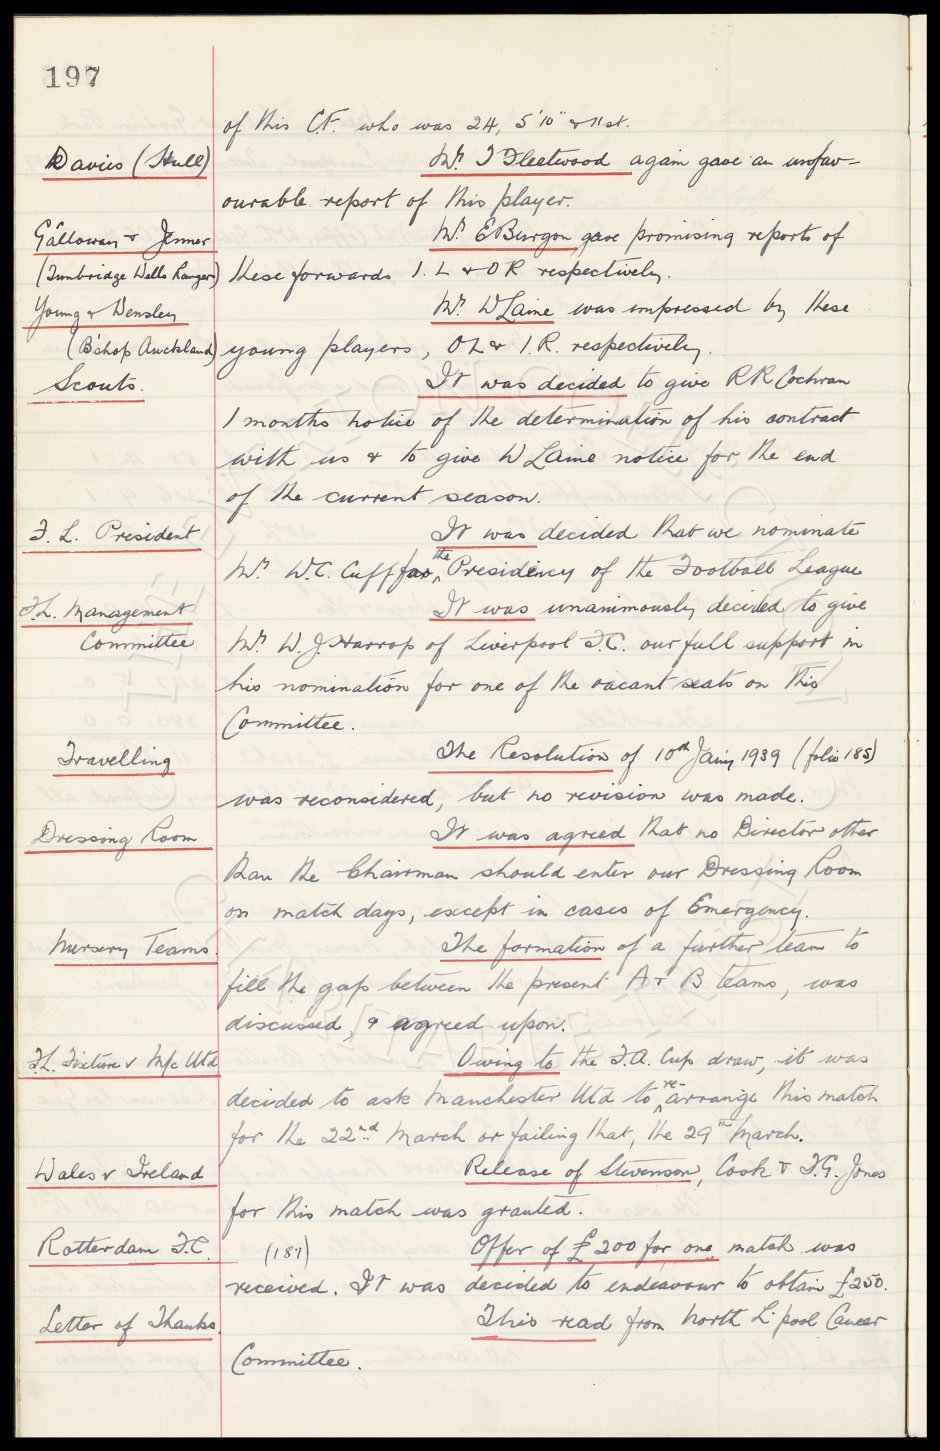 197
of this C.F. who was 24, 5'10" & 11st.
Davies (Hull) Mr. J Fleetwood again gave an unfav-
ourable report of this player.
Galloway & Jenner Mr. E Burgon gave promising reports of
(Tunbridge Wells Rangers) these forwards I.L & OR respectively.
Young & Wensley Mr. W Laine was impressed by these
(B'shop Auckland) young players, OL & I.R. respectively.
Scouts. It was decided to give R R Cochran
1 months notice of the determination of his contract
with us & to give W Laine notice for the end
of the current season.
F. L. President It was decided that we nominate
Mr. W.C. Cuff for the Presidency of the Football League
F.L. Management It was unanimously decided to give
Committee Mr. W. J. Harrop of Liverpool F.C. our full support in
his nomination for one of the vacant seats on this
Committee.
Travelling The Resolution of 10th Jany 1939 (folio 185)
was reconsidered, but no revision was made.
Dressing Room It was agreed that no Director other
than the Chairman should enter our Dressing Room
on match days, except in cases of Emergency.
Nursery Teams. The formation of a further team to
fill the gap between the present A & B teams, was
discussed, & agreed upon.
F.L. Fixture v M/c Utd Owing to the F.A. Cup draw, it was
decided to ask Manchester Utd to re-arrange this match
for the 22nd March or failing that, the 29th March.
Wales v Ireland Release of Stevenson, Cook & T.G. Jones
for this match was granted.
Rotterdam F.C. (187) Offer of £200 for one match was
received. It was decided to endeavour to obtain £250.
Letter of Thanks. This read from North L'pool Cancer
Committee.